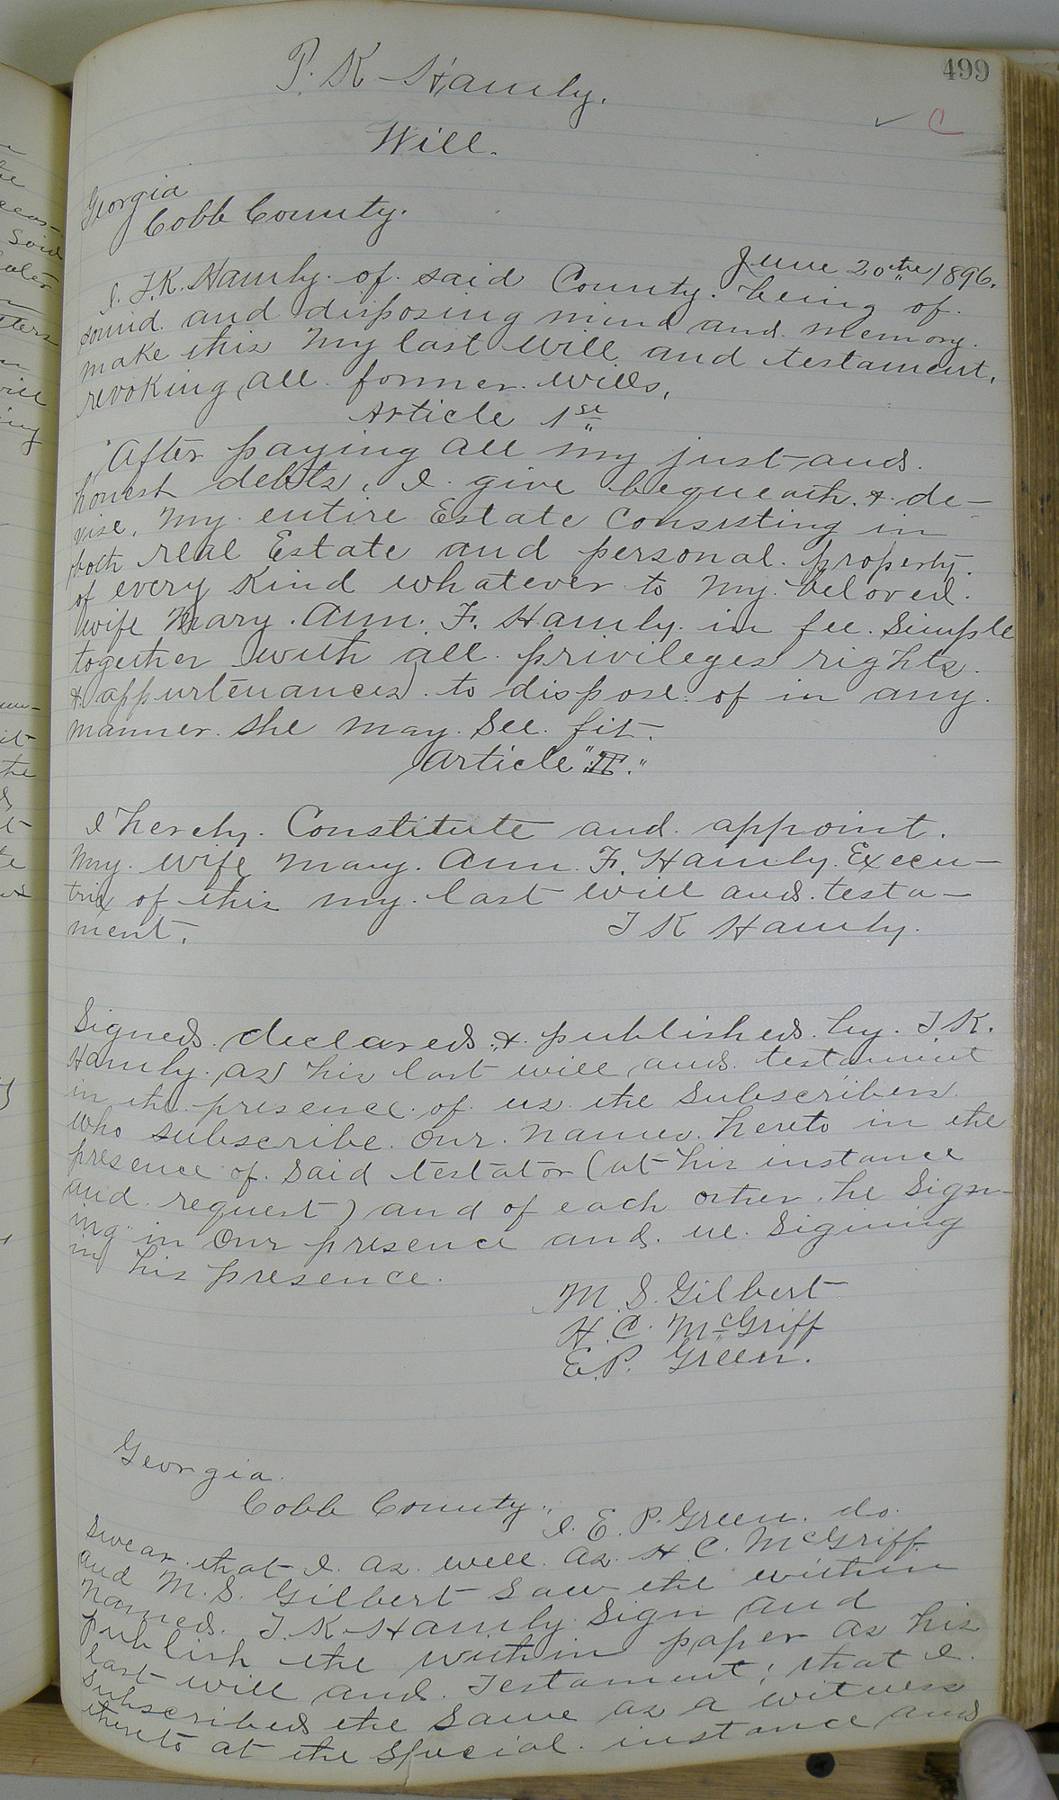 499
C
T. K. Hamby.
Will.
Georgia
Cobb County.
June 20the 1896.
I. T. K. Hamby. of. said County. being of.
sound. and disposing mind and. memory.
make this my last will and testament,
revoking all. former. wills,
Article 1st
After paying all my just and.
honest debts, I. give bequeath. & de-
vise, my. entire Estate Consisting in
both real Estate and personal. property.
of every Kind whatever to my. beloved.
wife Mary. Ann. F. Hamby. in fee. Simple
together with all. privileges rights.
& appurtenances. to dispose. of in any.
manner. she may. See. fit.
Article "II."
I hereby. Constitute and. appoint.
my. wife Mary. Ann. F. Hamby. Execu-
trix of this my. last will and. testa-
ment.
T K Hamby.
Signed. declared. & published. by. T K.
Hamby. as his last will and. testament
in the. presence. of. us. the Subscribers.
who subscribe. our. names. hereto in the
presence of. Said testator (at his instance
and request) and of each other. he Sign-
ing in Our presence and. we. Signing
in his presence.
M. S. Gilbert
H. C. McGriff
E. P. Green.
Georgia.
Cobb County.
I. E. P. Green. do.
Swear. that I. as. well. as. H. C. McGriff.
and M. S. Gilbert Saw the within
named. T. K. Hamby. Sign and
Publish the within paper as his
last will and. Testament; that I.
Subscribed the Same as a witness
thereto at the Special. instance and